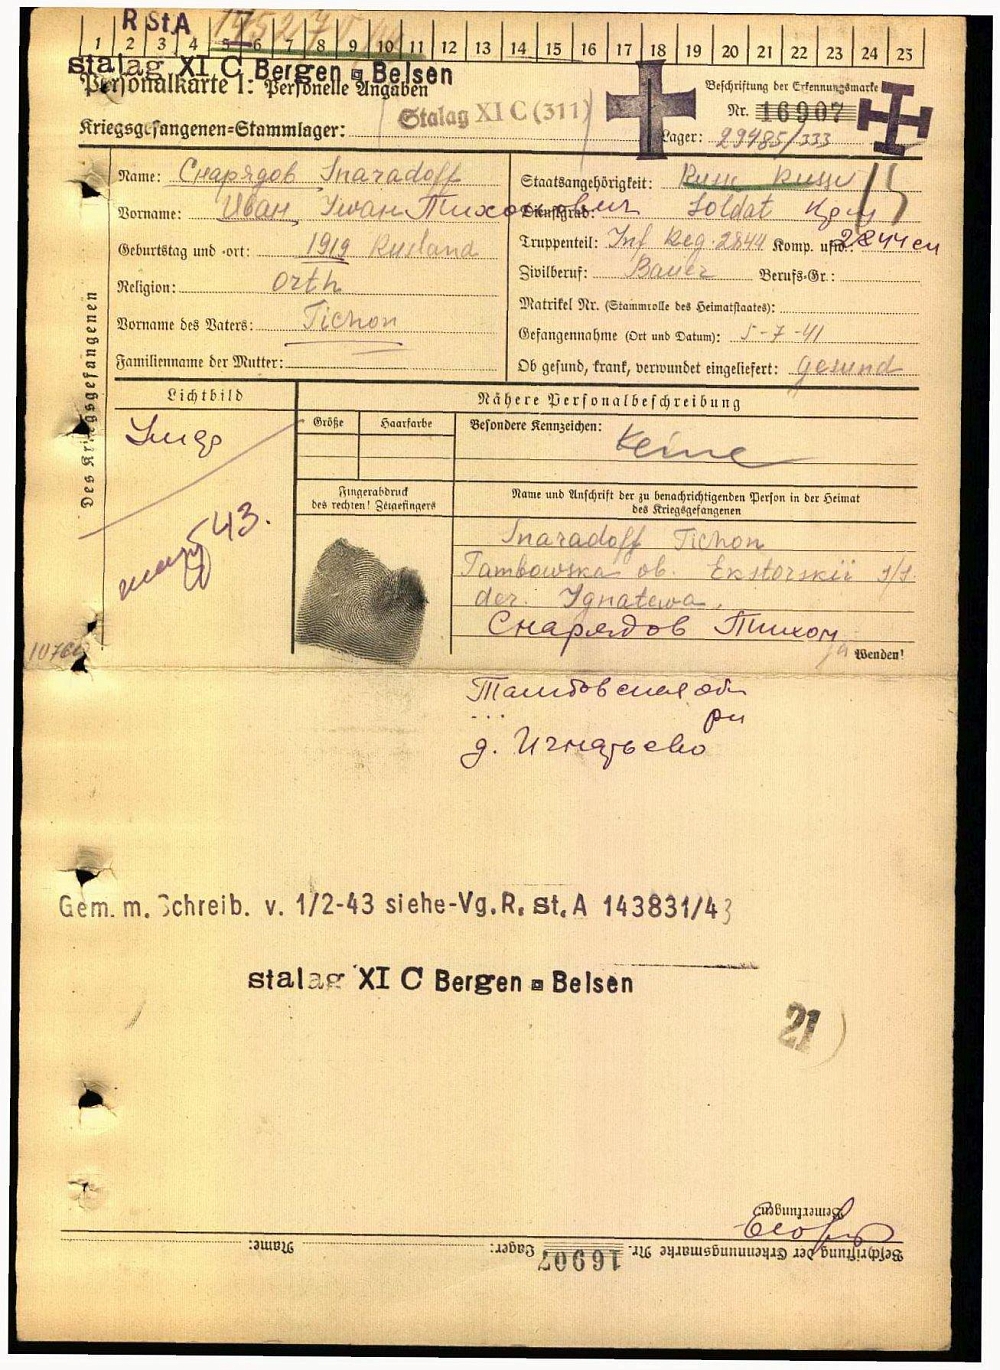 R St.A
1 2 3 4 5 6 7 8 9 10 11 12 13 14 15 16 17 18 19 20 21 22 23 24 25
stalag XI C Bergen Belsen
Personalkarte I: Personelle Angaben
Beschriftung der Erkennungsmarke
Kriegsgefangenen=Stammlager: Stalag XI C (311)
Nr. 16907
Lager: 29485/333
Des Kriegsgefangenen
Name: Снарядов Snaradoff
Vorname: Иван Iwan Тихонович
Geburtstag und -ort: 1919 Rusland
Religion: orth
Vorname des Vaters: Tichon
Familienname der Mutter:
Staatsangehörigkeit: Russ
Dienstgrad: Soldat
Truppenteil: Inf Reg. 2844 Komp. usw.: 2844
Zivilberuf: Bauer Berufs-Gr.:
Matrikel Nr. (Stammrolle des Heimatstaates):
Gefangennahme (Ort und Datum): 5-7-41
Ob gesund, krank, verwundet eingeliefert: gesund
Lichtbild
43.
Nähere Personalbeschreibung
Größe Haarfarbe Besondere Kennzeichen: Keine
Fingerabdruck
des rechten! Zeigefingers
Name und Anschrift der zu benachrichtigenden Person in der Heimat
des Kriegsgefangenen
Snaradoff Tichon
Tambowska ob. Ekstorskii
der. Ignatewa.
Снарядов Тихон
Wenden!
Тамбовская обл
рн
д. Игнатьево
Gem. m. Schreib. v. 1/2-43 siehe-Vg. R. St. A 143831/43
stalag XI C Bergen Belsen
21
Bemerkungen:
Beschriftung der Erkennungsmarke Nr. 16907 Lager: Name: